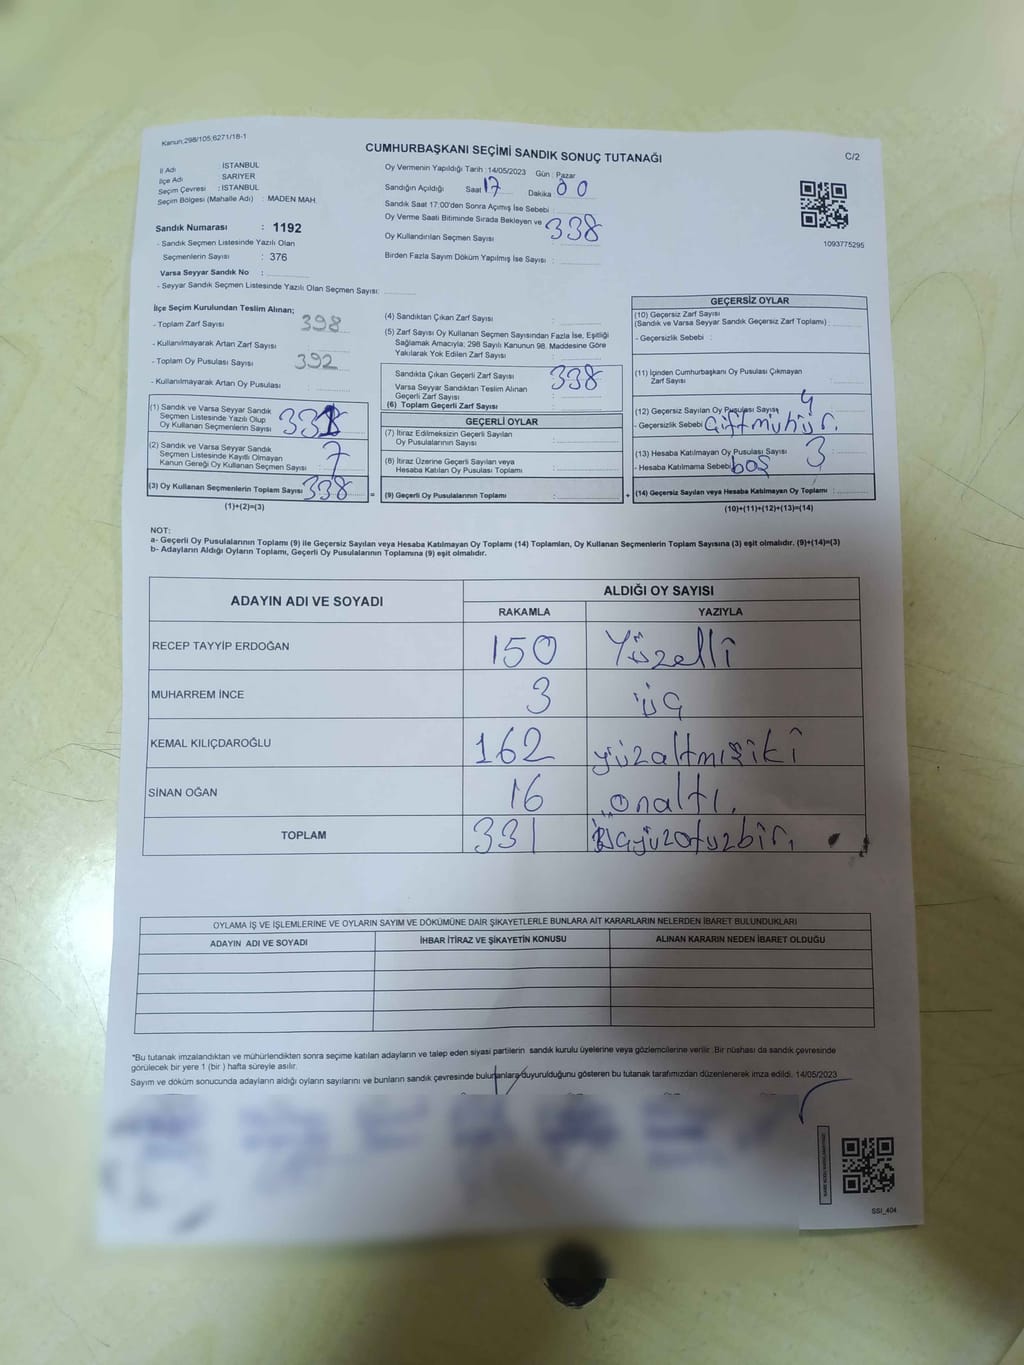 Kanun;298/105,6271/18-1
CUMHURBAŞKANI SEÇİMİ SANDIK SONUÇ TUTANAĞI
C/2
İl Adı : İSTANBUL
İlçe Adı : SARIYER
Seçim Çevresi : İSTANBUL
Seçim Bölgesi (Mahalle Adı) : MADEN MAH.
Sandık Numarası : 1192
- Sandık Seçmen Listesinde Yazılı Olan
Seçmenlerin Sayısı : 376
Varsa Seyyar Sandık No :
- Seyyar Sandık Seçmen Listesinde Yazılı Olan Seçmen Sayısı:
Oy Vermenin Yapıldığı Tarih :14/05/2023 Gün : Pazar
Sandığın Açıldığı Saat 17 Dakika 00
Sandık Saat 17:00'den Sonra Açımış İse Sebebi :
Oy Verme Saati Bitiminde Sırada Bekleyen ve
Oy Kullandırılan Seçmen Sayısı : 338
Birden Fazla Sayım Döküm Yapılmış İse Sayısı :
1093775295
İlçe Seçim Kurulundan Teslim Alınan;
- Toplam Zarf Sayısı : 398
- Kullanılmayarak Artan Zarf Sayısı :
- Toplam Oy Pusulası Sayısı : 392
- Kullanılmayarak Artan Oy Pusulası :
(1) Sandık ve Varsa Seyyar Sandık
Seçmen Listesinde Yazılı Olup
Oy Kullanan Seçmenlerin Sayısı : 331
(2) Sandık ve Varsa Seyyar Sandık
Seçmen Listesinde Kayıtlı Olmayan
Kanun Gereği Oy Kullanan Seçmen Sayısı : 7
(3) Oy Kullanan Seçmenlerin Toplam Sayısı : 338
(1)+(2)=(3)
(4) Sandıktan Çıkan Zarf Sayısı :
(5) Zarf Sayısı Oy Kullanan Seçmen Sayısından Fazla İse, Eşitliği
Sağlamak Amacıyla; 298 Sayılı Kanunun 98. Maddesine Göre
Yakılarak Yok Edilen Zarf Sayısı :
Sandıkta Çıkan Geçerli Zarf Sayısı : 338
Varsa Seyyar Sandıktan Teslim Alınan
Geçerli Zarf Sayısı :
(6) Toplam Geçerli Zarf Sayısı :
GEÇERLİ OYLAR
(7) İtiraz Edilmeksizin Geçerli Sayılan
Oy Pusulalarının Sayısı :
(8) İtiraz Üzerine Geçerli Sayılan veya
Hesaba Katılan Oy Pusulası Toplamı :
= (9) Geçerli Oy Pusulalarının Toplamı : +
GEÇERSİZ OYLAR
(10) Geçersiz Zarf Sayısı
(Sandık ve Varsa Seyyar Sandık Geçersiz Zarf Toplamı) :
- Geçersizlik Sebebi :
(11) İçinden Cumhurbaşkanı Oy Pusulası Çıkmayan
Zarf Sayısı :
(12) Geçersiz Sayılan Oy Pusulası Sayısı : 4
- Geçersizlik Sebebi : Çiftmühür.
(13) Hesaba Katılmayan Oy Pusulası Sayısı : 3
- Hesaba Katılmama Sebebi : boş
(14) Geçersiz Sayılan veya Hesaba Katılmayan Oy Toplamı :
(10)+(11)+(12)+(13)=(14)
NOT:
a- Geçerli Oy Pusulalarının Toplamı (9) ile Geçersiz Sayılan veya Hesaba Katılmayan Oy Toplamı (14) Toplamları, Oy Kullanan Seçmenlerin Toplam Sayısına (3) eşit olmalıdır. (9)+(14)=(3)
b- Adayların Aldığı Oyların Toplamı, Geçerli Oy Pusulalarının Toplamına (9) eşit olmalıdır.
ADAYIN ADI VE SOYADI ALDIĞI OY SAYISI
RAKAMLA YAZIYLA
RECEP TAYYİP ERDOĞAN 150 Yüzelli
MUHARREM İNCE 3 üç
KEMAL KILIÇDAROĞLU 162 yüzaltmışiki
SİNAN OĞAN 16 onaltı.
TOPLAM 331 üçyüzotuzbir.
OYLAMA İŞ VE İŞLEMLERİNE VE OYLARIN SAYIM VE DÖKÜMÜNE DAİR ŞİKAYETLERLE BUNLARA AİT KARARLARIN NELERDEN İBARET BULUNDUKLARI
ADAYIN ADI VE SOYADI İHBAR İTİRAZ VE ŞİKAYETİN KONUSU ALINAN KARARIN NEDEN İBARET OLDUĞU
*Bu tutanak imzalandıktan ve mühürlendikten sonra seçime katılan adayların ve talep eden siyasi partilerin sandık kurulu üyelerine veya gözlemcilerine verilir. Bir nüshası da sandık çevresinde
görülecek bir yere 1 (bir ) hafta süreyle asılır.
Sayım ve döküm sonucunda adayların aldığı oyların sayılarını ve bunların sandık çevresinde bulunanlara duyurulduğunu gösteren bu tutanak tarafımızdan düzenlenerek imza edildi. 14/05/2023
SSI_404